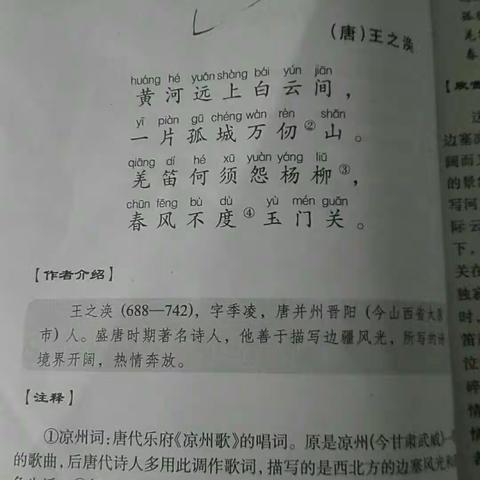 (唐)王之涣
huáng hé yuǎn shàng bái yún jiān
黄河远上白云间，
yī piàn gū chéng wàn rèn shān
一片孤城万仞②山。
qiāng dí hé xū yuàn yáng liǔ
羌笛何须怨杨柳③，
chūn fēng bù dù yù mén guān
春风不度④玉门关。
【作者介绍】
王之涣(688—742)，字季凌，唐并州晋阳(今山西省太原
市)人。盛唐时期著名诗人，他善于描写边疆风光，所写的诗
境界开阔，热情奔放。
【注释】
①凉州词：唐代乐府《凉州歌》的唱词。原是凉州(今甘肃武威)一
的歌曲，后唐代诗人多用此调作歌词，描写的是西北方的边塞风光和
边塞
阔而
的景
写河
际云
下，
关在
独寂
时，
笛
泣
碎
情
情